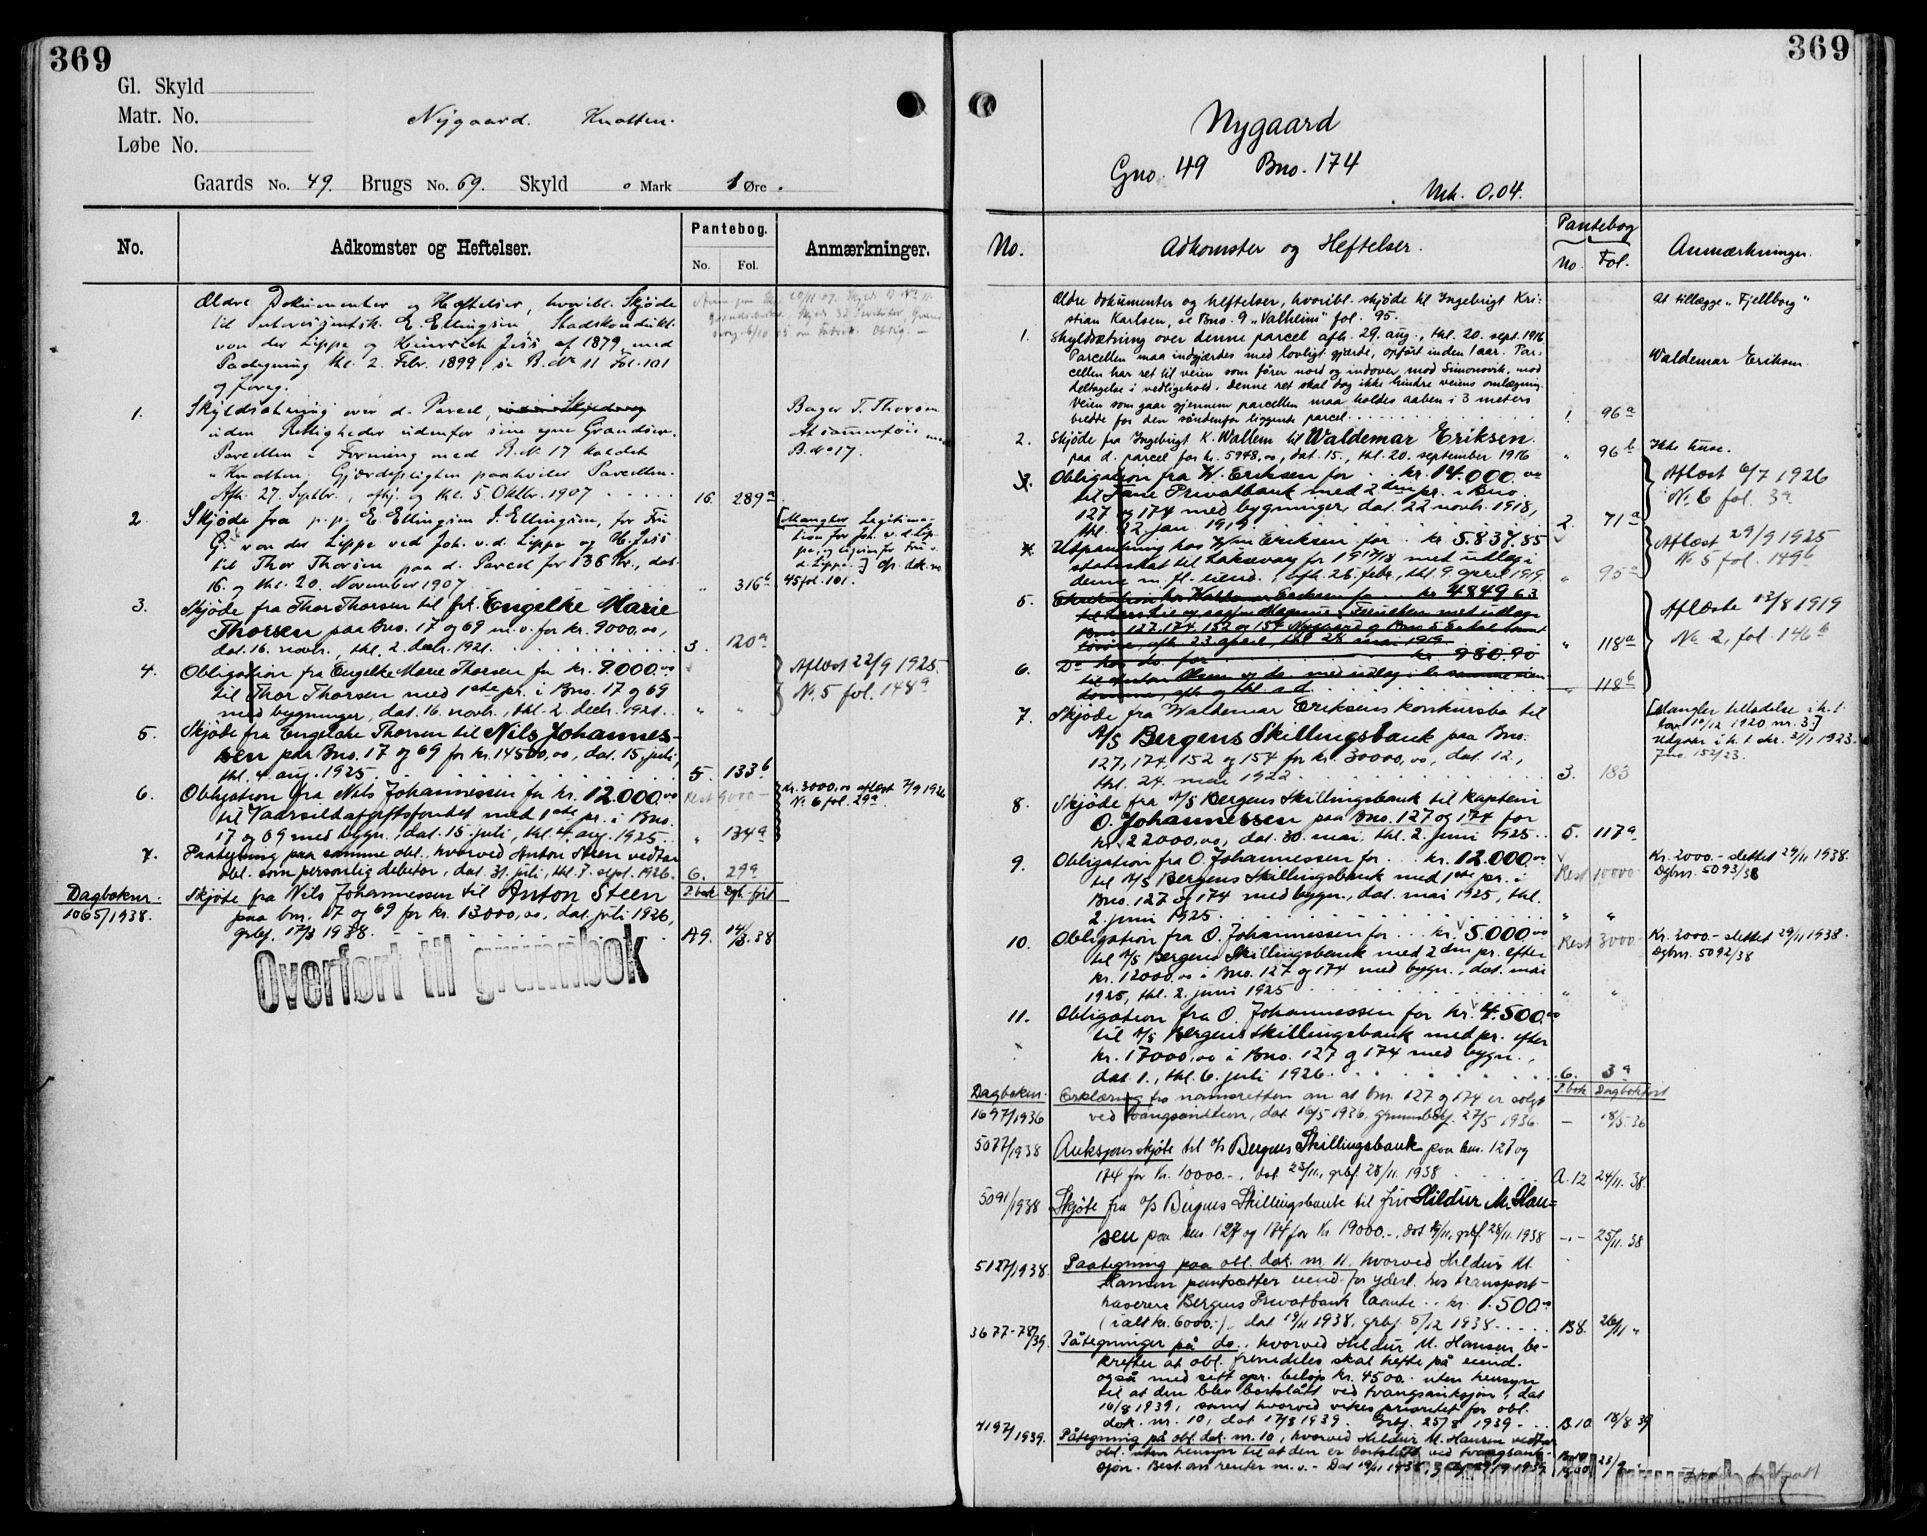 369
Gl. Skyld
Matr. No.
Løbe No.
Nygaard. Knatten.
Gaards No. 49. Brugs No. 69. Skyld 0 Mark 1 Øre.
No.
Adkomster og Heftelser.
Pantebog.
No. Fol.
Anmærkninger.
Ældre Dokumenter og Heftelser, hvoribl. Skjøde
til Overretssagf. E. Ellingsen, Stadskondukt.
von der Lippe og Heinrich Jess af 1879 med
Paategning thl. 2. Febr. 1899, se B. No 11 Fol. 101
og foreg.
1. Skyldsætning over d. Parcel,
uden Rettigheder udenfor sine egne Grændser.
Parcellen i Forening med B.N. 17 kaldet
"Knatten". Gjærdepligten paahviler Parcellen.
Afh. 27. Septbr., afhj. og thl. 5 Oktbr. 1907 16 289a
Bager T. Thorsen
At sammenføies med
B.No 17.
2. Skjøde fra p.p. E. Ellingsen J. Ellingsen, for Fru
G. von der Lippe ved Joh. v. d. Lippe og H. Jess
til Thor Thorsen paa d. Parcel for 136 Kr., dat.
16. og thl. 20. November 1907 " 316b
[Mangler Legitima-
tion for Joh. v. d. Lip-
pe, og ligesom for Fru v.
d. Lippe.] cfr. dok. no
45 fol. 101.
3. Skjøde fra Thor Thorsen til frk. Engelke Marie
Thorsen paa Bno. 17 og 69 m.v. for kr. 9000,00,
dat. 16. novbr., thl. 2. decbr. 1921. 3. 120a
4. Obligation fra Engelke Marie Thorsen for kr. 8.000.00
til Thor Thorsen med 1ste pr. i Bno. 17 og 69
med bygninger, dat. 16. novbr., thl. 2. decbr. 1921. " "
Aflæst 22/9 1925
No. 5 fol. 148a
5. Skjøde fra Engelcke Thorsen til Nils Johannes-
sen paa Bno. 17 og 69 for kr. 14500,00, dat. 15. juli,
thl. 4. aug. 1925. 5. 133b
6. Obligation fra Nils Johannessen for kr. 12.000.00 Rest 9000 -
til Vaarsildavgiftsfondet med 1ste pr. i Bno.
17 og 69 med bygn., dat. 15. juli, thl. 4. aug. 1925. " 134a
Kr. 3000,00 aflæst 7/9 1926
No. 6 fol. 29a.
7. Paategning paa samme obl., hvorved Anton Steen vedtar
obl. som personlig debitor, dat. 31. juli, thl. 7. sept. 1926. 6. 29a
Dagboknr.
1065/1938.
Skjøte fra Nils Johannessen til Anton Steen
paa bnr. 17 og 69 for kr. 13000,00, dat. juli 1926,
grbf. 17/3 1938. A9. 14/3.38
Overført til grunnbok
369
Nygaard
Gno. 49 Bno. 174
Mrk. 0,04.
No.
Adkomster og Heftelser.
Pantebog
No. Fol.
Anmærkninger.
Ældre dokumenter og heftelser, hvoribl. skjøde til Ingebrigt Kri-
stian Karlsen, se Bno. 9 "Valheim" fol. 95.
At tillægge "Fjellborg"
1. Skyldsætning over denne parcel afh. 29. aug., thl. 20. sept. 1916
Parcellen maa indgjærdes med lovligt gjærde, opført inden 1 aar. Par-
cellen har ret til veien som fører nord og indover mod Simonsvik, mod
deltagelse i vedligehold. Denne ret skal dog ikke hindre veiens omlægning.
Veien som gaar gjennem parcellen maa holdes aaben i 3 meters
bredde for den søndenfor liggende parcel. 1. 96a
Waldemar Eriksen
2. Skjøde fra Ingebrigt K. Wallem til Waldemar Eriksen.
paa d. parcel for kr. 5948,00, dat. 15., thl. 20. september 1916 " 96b
Ikke huse.
3. Obligation fra W. Eriksen for kr. 14.000.00
til Fane Privatbank med 2den pr. i Bno.
127 og 174 med bygninger, dat. 22 novbr. 1918,
thl. 12. jan. 1919. 2. 71a
Aflæst 6/7 1926
No. 6 fol. 3a
4. Utpantning hos W/m Eriksen for kr. 5.837,85
statsskat til Laksevag for 1917/18 med utlæg i
denne m. fl. eiend., afh. 26. febr., thl. 9. april 1919. " 95a
Aflæst 29/9 1925
No 5 fol. 149b
5. Exekution hos Waldemar Eriksen for kr. 4849,63
Bno. 127, 174, 152 og 154 Nygaard og Bno 5
afh. 23. april, thl. 28. mai 1919. " 118a
Aflæste 13/8 1919
No 2, fol. 146b
6. Do hos do. for kr. 980.90
til Anton Olsen og do. med utlæg i de samme eien-
domme, afh. og thl. s.d. " 118b
7. Skjøde fra Waldemar Eriksens konkursbo til
A/S Bergens Skillingsbank paa Bno.
127, 174, 152 og 154 for kr. 30000,00, dat. 12.,
thl. 24. mai 1922. 3. 183
[Mangler tilladelse i h. t.
lov 10/12 1920 nr. 3.]
Udgaar i h. t. skr. 31/1 1923.
Jno. 152/23.
8. Skjøde fra A/S Bergens Skillingsbank til kaptein
O. Johannessen paa Bno. 127 og 174 for
kr. 22000,00, dat. 30. mai, thl. 2. juni 1925. 5. 117a
9. Obligation fra O. Johannessen for kr. 12.000.00 Rest 10000
til A/S Bergens Skillingsbank med 1ste pr. i
Bno. 127 og 174 med bygn., dat. mai 1925, thl.
2. juni 1925. " "
Kr. 2000.- slettet 29/11 1938.
Dgbnr. 5093/38
10. Obligation fra O. Johannessen for kr. 5.000.00 Rest 3000
til A/S Bergens Skillingsbank med 2den pr. efter
kr. 12000,00 i Bno. 127 og 174 med bygn., dat. mai
1925, thl. 2. juni 1925 " "
Kr. 2000.- slettet 29/11 1938.
Dgbnr. 5092/38
11. Obligation fra O. Johannessen for kr. 4.500.00
til A/S Bergens Skillingsbank med pr. efter
kr. 17000,00 i Bno. 127 og 174 med bygn.,
dat. 1., thl. 6. juli 1926. 6. 3a
Dagboknr. P.bok Dagbokført
1697/1936 Erklæring fra namsretten om at bnr. 127 og 174 er solgt
ved tvangsauktion, dat. 16/5 1936, grunnbokf. 27/5 1936. - 18/5.36
5077/1938 Auksjonsskjøte til A/S Bergens Skillingsbank paa bnr. 127 og
174 for kr. 10000.-, dat 23/11, grbf 28/11 1938 A.12 24/11.38.
5091/1938 Skjøte fra A/S Bergens Skillingsbank til fru Hildur M. Han=
sen paa bnr. 127 og 174 for kr 19000.-, dat 19/11, grbf 28/11 1938 -"- 25/11.38
5127/1938. Paategning paa obl. dok. nr. 11, hvorved Hildur M.
Hansen pantsætter eiend. for yderl. hos transport-
haveren Bergens Privatbank laante kr. 1.500.00
(ialt kr. 6000.-), dat 19/11 1938, grbf. 5/12 1938. B8. 26/11 "
3677-78/39. Påtegninger på do., hvorved Hildur M. Hansen be-
krefter at obl. fremdeles skal hefte på eiend.
også med sitt opr. beløp kr. 4500.- uten hensyn
til at den blev bortslått ved tvangsauksjon, dat
16/8 1939, samt hvorved vikes prioritet for obl.
dok. nr. 10, dat 17/8 1939. Grbf. 25/8 1939. B.10 18/8 39
4197/1939. Påtegning på obl. dok. nr. 10, hvorved Hildur M. Hansen vedtar
obl. uten hensyn til at den er bortslått ved tvangsauk-
sjon. Best. om renter m.v. - Dat 19/11 1938, 1939.
Overført til grunnbok